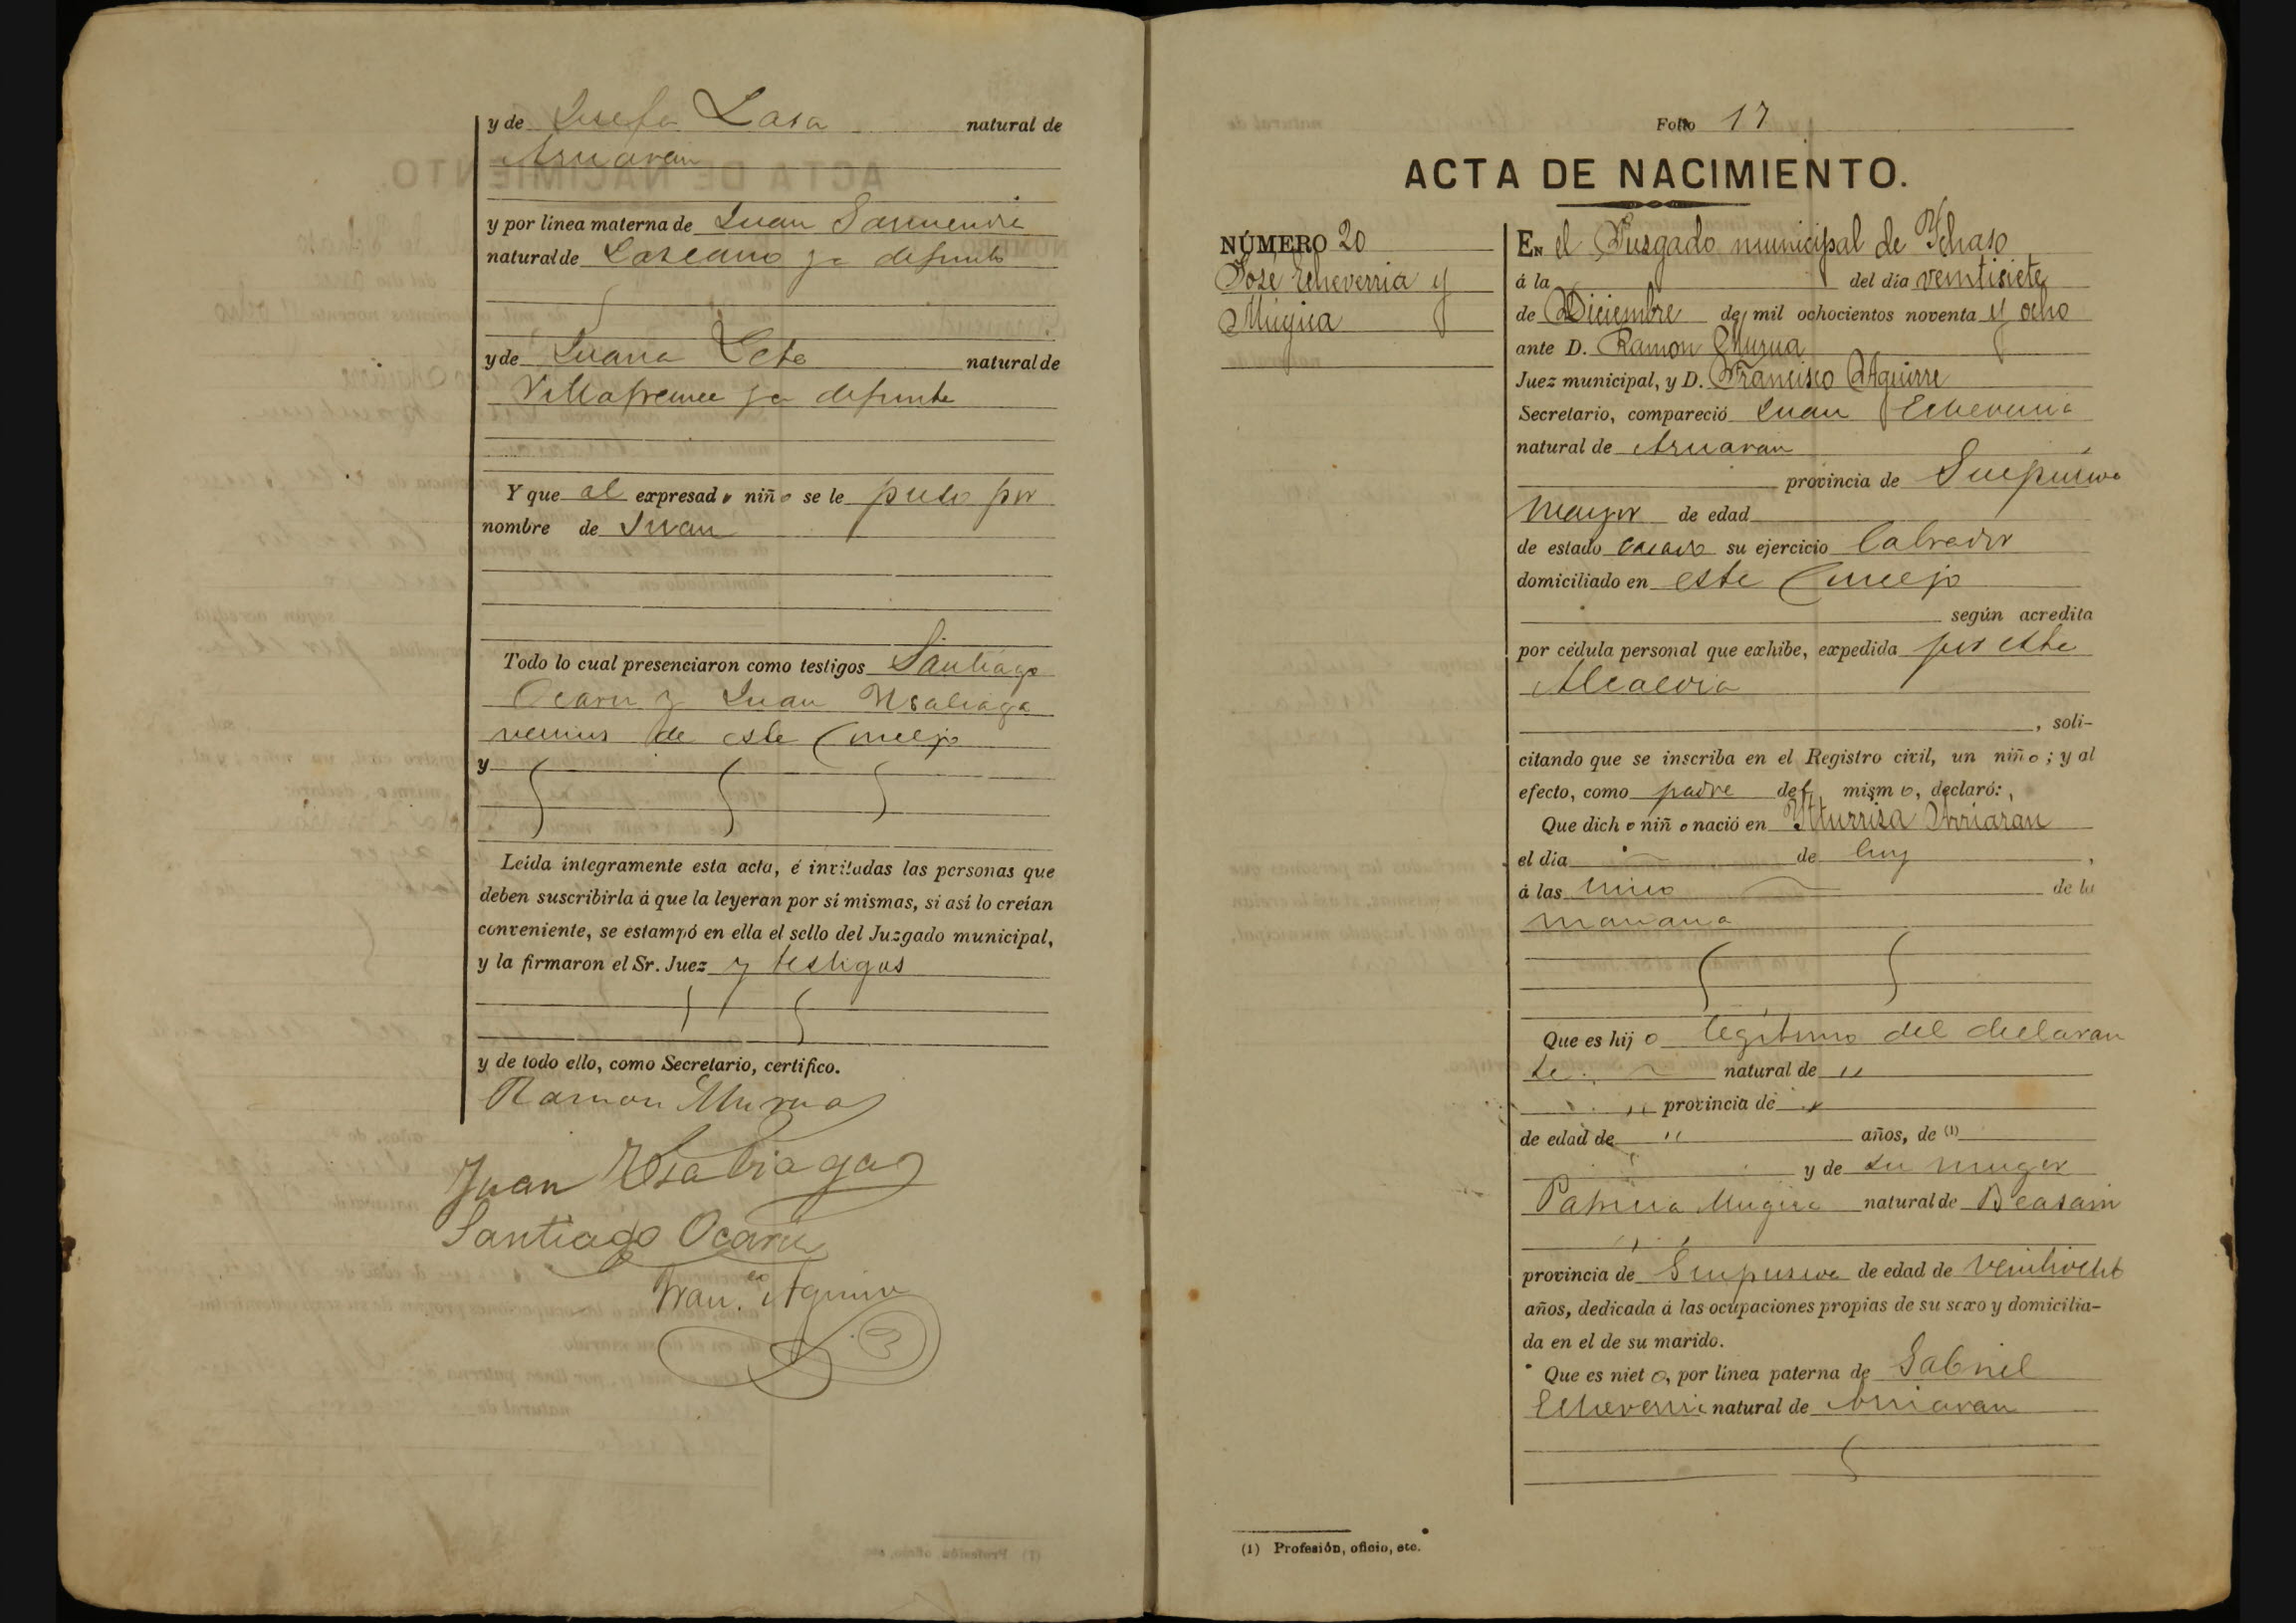 y de Josefa Lasa natural de
Arriaran
y por línea materna de Juan Garmendia
natural de Lazcano ya defunto
y de Juana natural de
Villafranca ya defunta
Y que al expresado niño se le puso por
nombre de Juan
Todo lo cual presenciaron como testigos Santiago
Ocariz y Juan Usabiaga
vecinos de este Concejo
y
Leída íntegramente esta acta, é invitadas las personas que
deben suscribirla á que la leyeran por sí mismas, si así lo creían
conveniente, se estampó en ella el sello del Juzgado municipal,
y la firmaron el Sr. Juez y testigos
y de todo ello, como Secretario, certifico.
Ramon Murua
Juan Usabiaga
Santiago Ocariz
Fran.co Aguirre
Folio 17
ACTA DE NACIMIENTO.
NÚMERO 20
José Echeverria y
Mugica
En el Jusgado municipal de Ychaso
á la del día veintisiete
de Diciembre de mil ochocientos noventa y ocho
ante D. Ramon Murua
Juez municipal, y D. Francisco Aguirre
Secretario, compareció Juan Echeverria
natural de Arriaran
provincia de Guipuzcoa
mayor de edad
de estado casado su ejercicio labrador
domiciliado en este Concejo
según acredita
por cédula personal que exhibe, expedida por esta
Alcaldia
, soli-
citando que se inscriba en el Registro civil, un niño; y al
efecto, como padre del mismo, declaró:
Que dicho niño nació en Yturrisa Arriaran
el día de hoy,
á las cinco de la
mañana
Que es hijo legitimo del declaran
te natural de "
" provincia de "
de edad de " años, de (1)
y de su muger
Patricia Mugica natural de Beasain
provincia de Guipuzcoa de edad de veintiocho
años, dedicada á las ocupaciones propias de su sexo y domicilia-
da en el de su marido.
Que es nieto, por línea paterna de Gabriel
Echeverria natural de Arriaran
(1) Profesión, oficio, etc.